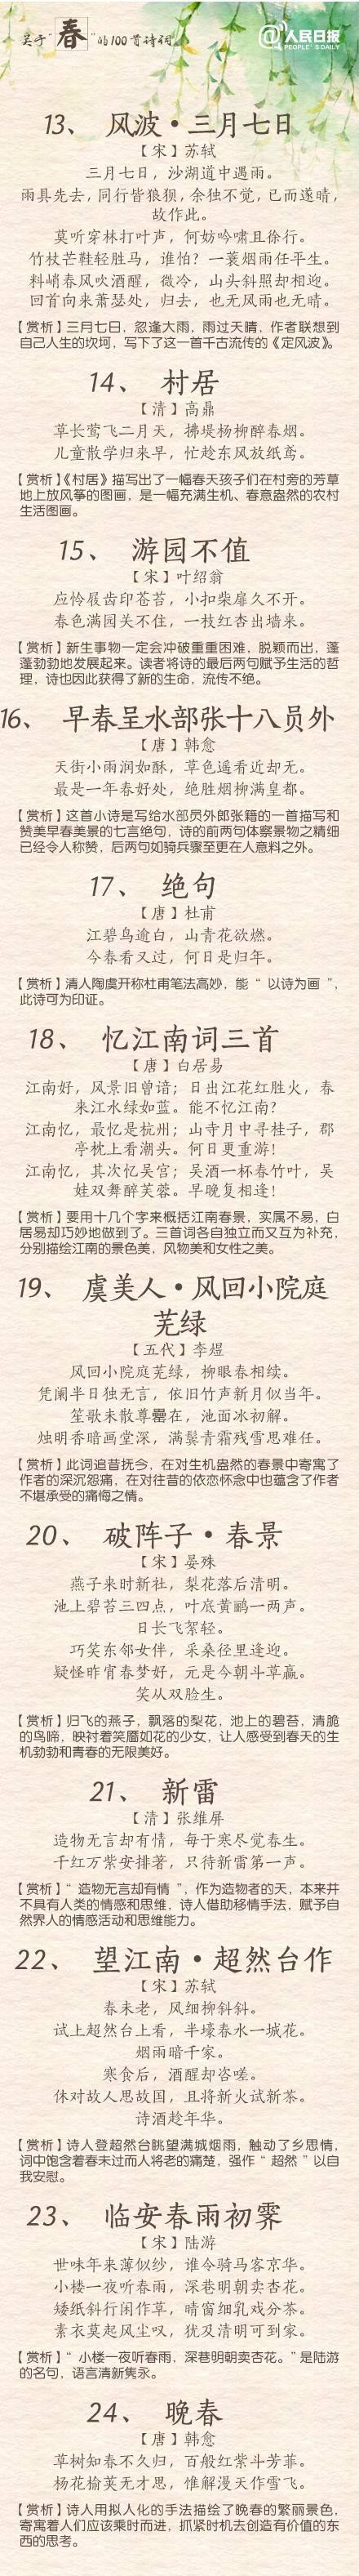 关于“春”的100首诗词
@人民日报
PEOPLE'S DAILY
13、 风波·三月七日
【宋】苏轼
三月七日，沙湖道中遇雨。
雨具先去，同行皆狼狈，余独不觉，已而遂晴，
故作此。
莫听穿林打叶声，何妨吟啸且徐行。
竹杖芒鞋轻胜马，谁怕？一蓑烟雨任平生。
料峭春风吹酒醒，微冷，山头斜照却相迎。
回首向来萧瑟处，归去，也无风雨也无晴。
【赏析】三月七日，忽逢大雨，雨过天晴，作者联想到
自己人生的坎坷，写下了这一首千古流传的《定风波》。
14、 村居
【清】高鼎
草长莺飞二月天，拂堤杨柳醉春烟。
儿童散学归来早，忙趁东风放纸鸢。
【赏析】《村居》描写出了一幅春天孩子们在村旁的芳草
地上放风筝的图画，是一幅充满生机、春意盎然的农村
生活图画。
15、 游园不值
【宋】叶绍翁
应怜屐齿印苍苔，小扣柴扉久不开。
春色满园关不住，一枝红杏出墙来。
【赏析】新生事物一定会冲破重重困难，脱颖而出，蓬
蓬勃勃地发展起来。读者将诗的最后两句赋予生活的哲
理，诗也因此获得了新的生命，流传不绝。
16、 早春呈水部张十八员外
【唐】韩愈
天街小雨润如酥，草色遥看近却无。
最是一年春好处，绝胜烟柳满皇都。
【赏析】这首小诗是写给水部员外郎张籍的一首描写和
赞美早春美景的七言绝句，诗的前两句体察景物之精细
已经令人称赞，后两句如骑兵骤至更在人意料之外。
17、 绝句
【唐】杜甫
江碧鸟逾白，山青花欲燃。
今春看又过，何日是归年。
【赏析】清人陶虞开称杜甫笔法高妙，能“以诗为画”，
此诗可为印证。
18、 忆江南词三首
【唐】白居易
江南好，风景旧曾谙；日出江花红胜火，春
来江水绿如蓝。能不忆江南？
江南忆，最忆是杭州；山寺月中寻桂子，郡
亭枕上看潮头。何日更重游！
江南忆，其次忆吴宫；吴酒一杯春竹叶，吴
娃双舞醉芙蓉。早晚复相逢！
【赏析】要用十几个字来概括江南春景，实属不易，白
居易却巧妙地做到了。三首词各自独立而又互为补充，
分别描绘江南的景色美，风物美和女性之美。
19、 虞美人·风回小院庭
芜绿
【五代】李煜
风回小院庭芜绿，柳眼春相续。
凭阑半日独无言，依旧竹声新月似当年。
笙歌未散尊罍在，池面冰初解。
烛明香暗画堂深，满鬓青霜残雪思难任。
【赏析】此词追昔抚今，在对生机盎然的春景中寄寓了
作者的深沉怨痛，在对往昔的依恋怀念中也蕴含了作者
不堪承受的痛悔之情。
20、 破阵子·春景
【宋】晏殊
燕子来时新社，梨花落后清明。
池上碧苔三四点，叶底黄鹂一两声。
日长飞絮轻。
巧笑东邻女伴，采桑径里逢迎。
疑怪昨宵春梦好，元是今朝斗草赢。
笑从双脸生。
【赏析】归飞的燕子，飘落的梨花，池上的碧苔，清脆
的鸟啼，映衬着笑靥如花的少女，让人感受到春天的生
机勃勃和青春的无限美好。
21、 新雷
【清】张维屏
造物无言却有情，每于寒尽觉春生。
千红万紫安排著，只待新雷第一声。
【赏析】“造物无言却有情”，作为造物者的天，本来并
不具有人类的情感和思维，诗人借助移情手法，赋予自
然界人的情感活动和思维能力。
22、 望江南·超然台作
【宋】苏轼
春未老，风细柳斜斜。
试上超然台上看，半壕春水一城花。
烟雨暗千家。
寒食后，酒醒却咨嗟。
休对故人思故国，且将新火试新茶。
诗酒趁年华。
【赏析】诗人登超然台眺望满城烟雨，触动了乡思情，
词中饱含着春未过而人将老的痛楚，强作“超然”以自
我安慰。
23、 临安春雨初霁
【宋】陆游
世味年来薄似纱，谁令骑马客京华。
小楼一夜听春雨，深巷明朝卖杏花。
矮纸斜行闲作草，晴窗细乳戏分茶。
素衣莫起风尘叹，犹及清明可到家。
【赏析】“小楼一夜听春雨，深巷明朝卖杏花。”是陆游
的名句，语言清新隽永。
24、 晚春
【唐】韩愈
草树知春不久归，百般红紫斗芳菲。
杨花榆荚无才思，惟解漫天作雪飞。
【赏析】诗人用拟人化的手法描绘了晚春的繁丽景色，
寄寓着人们应该乘时而进，抓紧时机去创造有价值的东
西的思考。